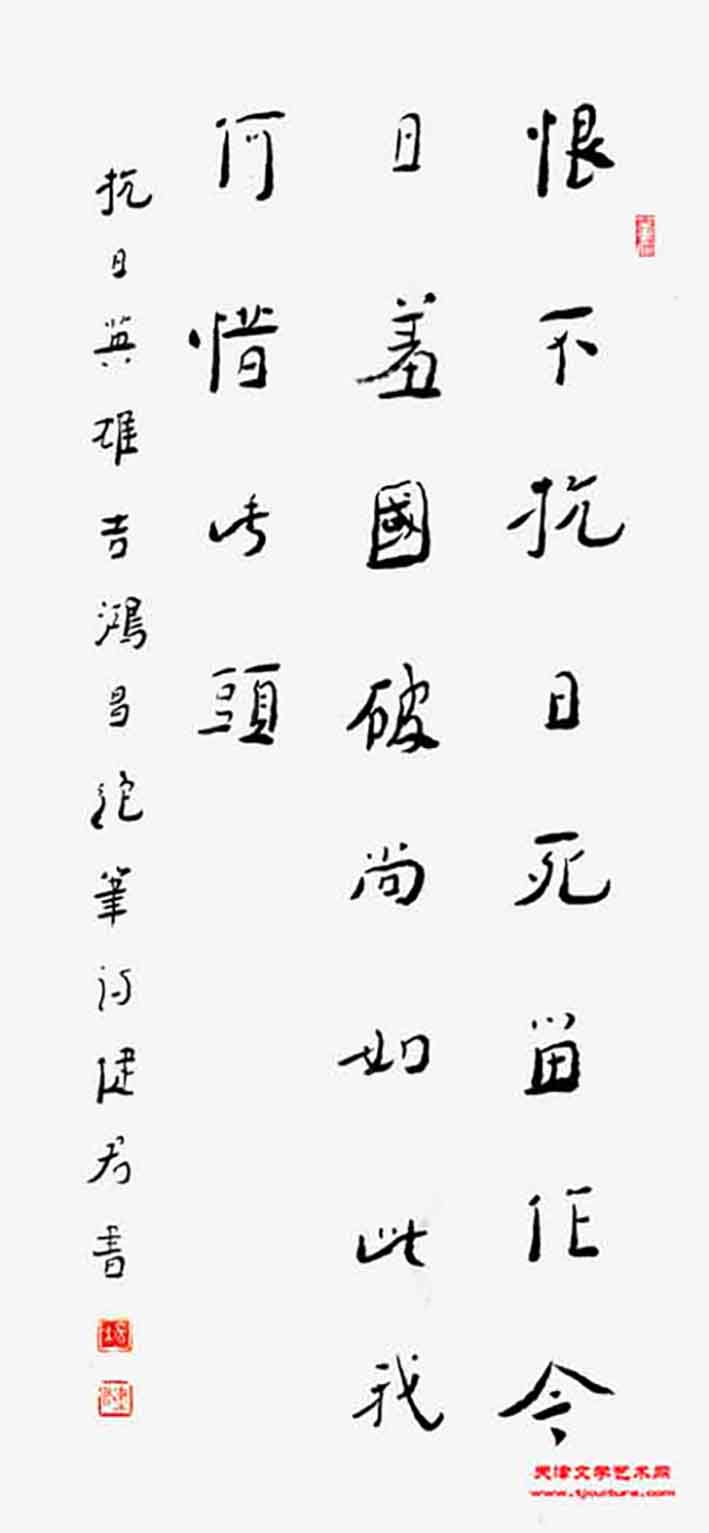 恨不抗日死留作今
日羞國破尚如此我
何惜此頭
抗日英雄吉鴻昌绝筆诗健君書
天津文学艺术网
www.tjculture.com